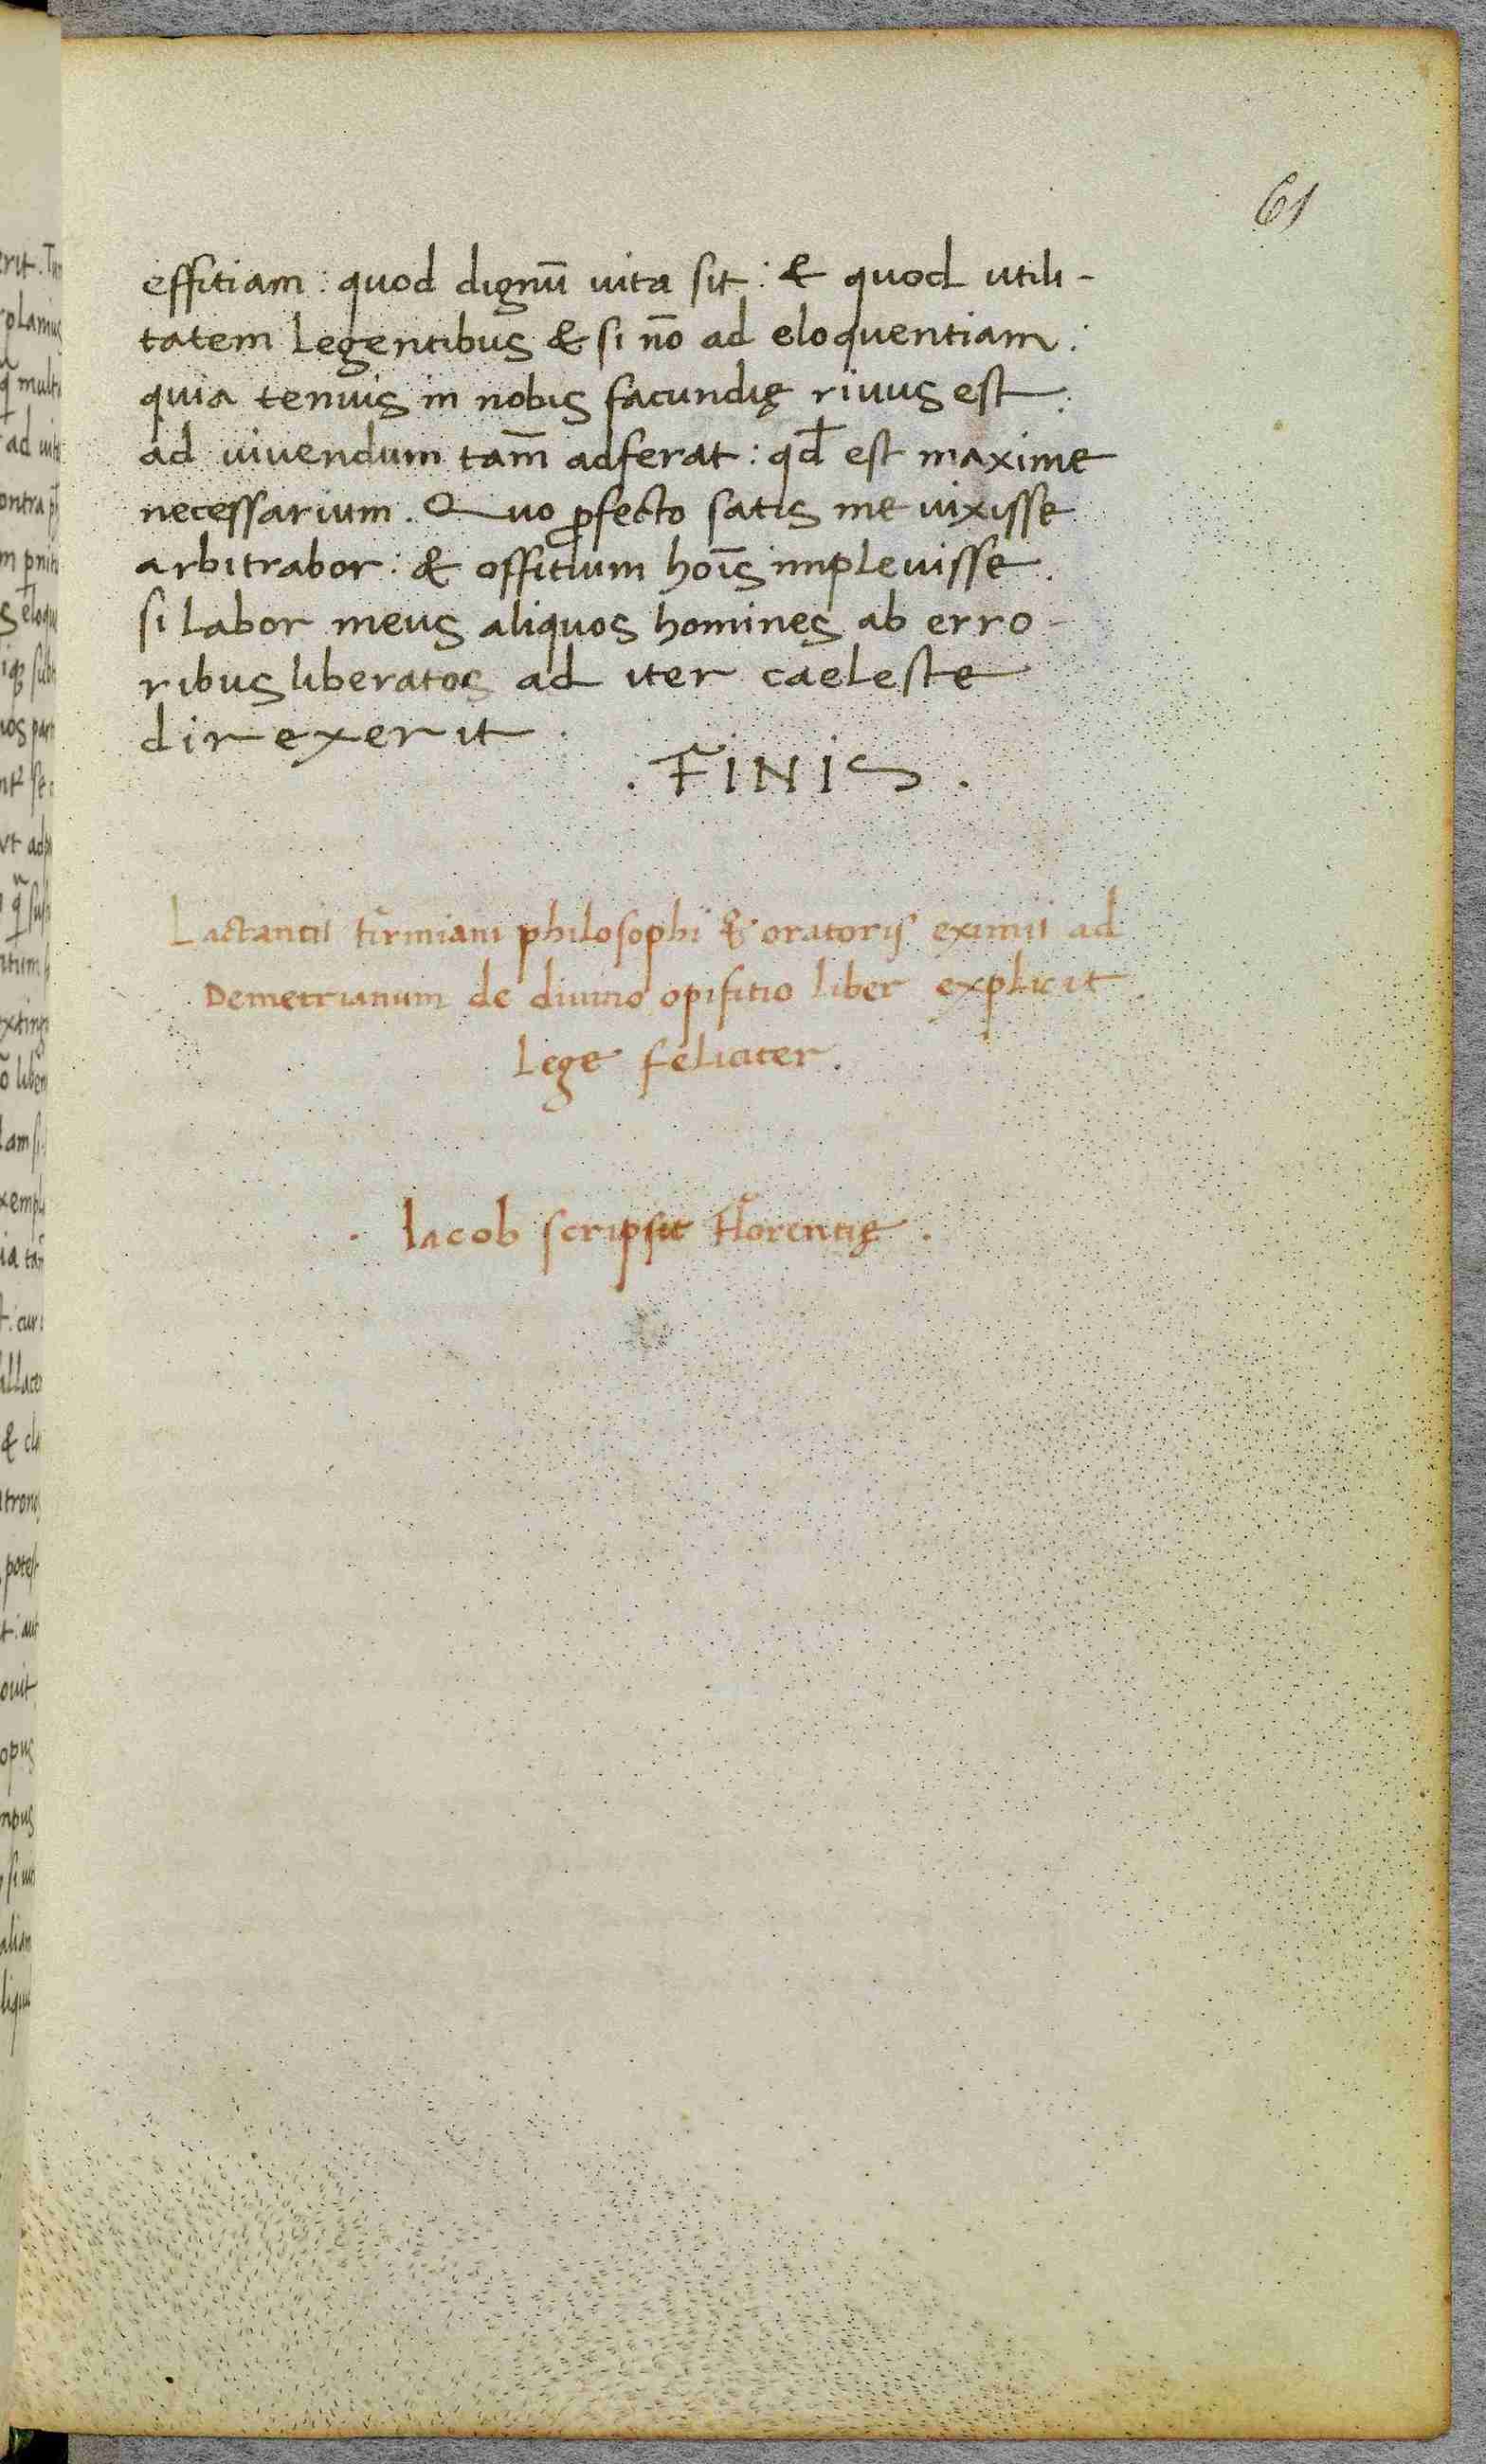 61
effitiam : quod dignū uita sit : & quod utili-
tatem legentibus & si nō ad eloquentiam :
quia tenuis in nobis facundię riuus est :
ad uiuendum tam̄ adferat : qd̄ est maxime
necessarium . Quo ꝓfecto satis me uixisse
arbitrabor : & offitium hoīs impleuisse .
si labor meus aliquos homines ab erro-
ribus liberatos ad iter caeleste
direxerit .
. FINIS .
Lactantii firmiani philosophi & oratoris eximii ad
Demetrianum de diuino opifitio liber explicit
Lege feliciter .
. Iacob scripsit Florentię .